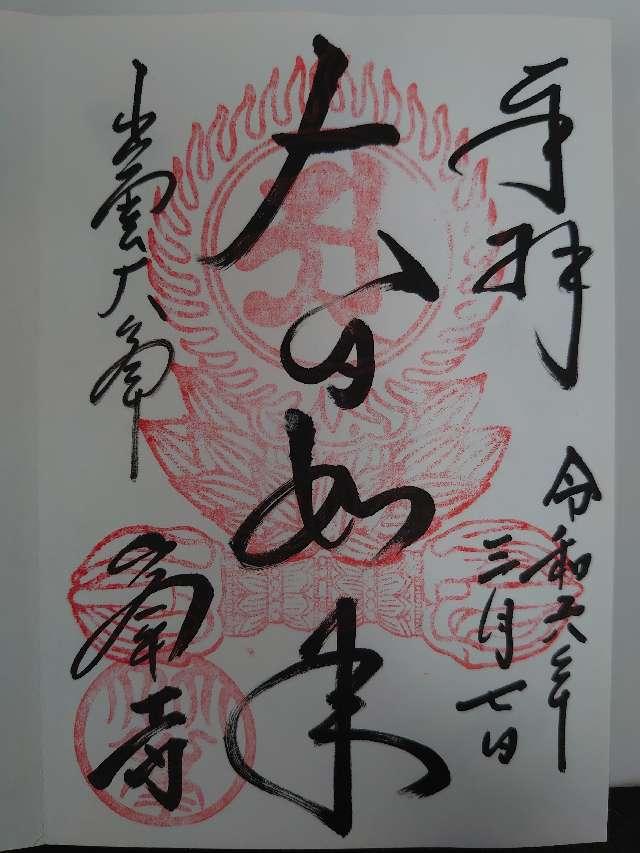 奉拝
令和六年
三月七日
大日如来
出雲大峯
峯寺